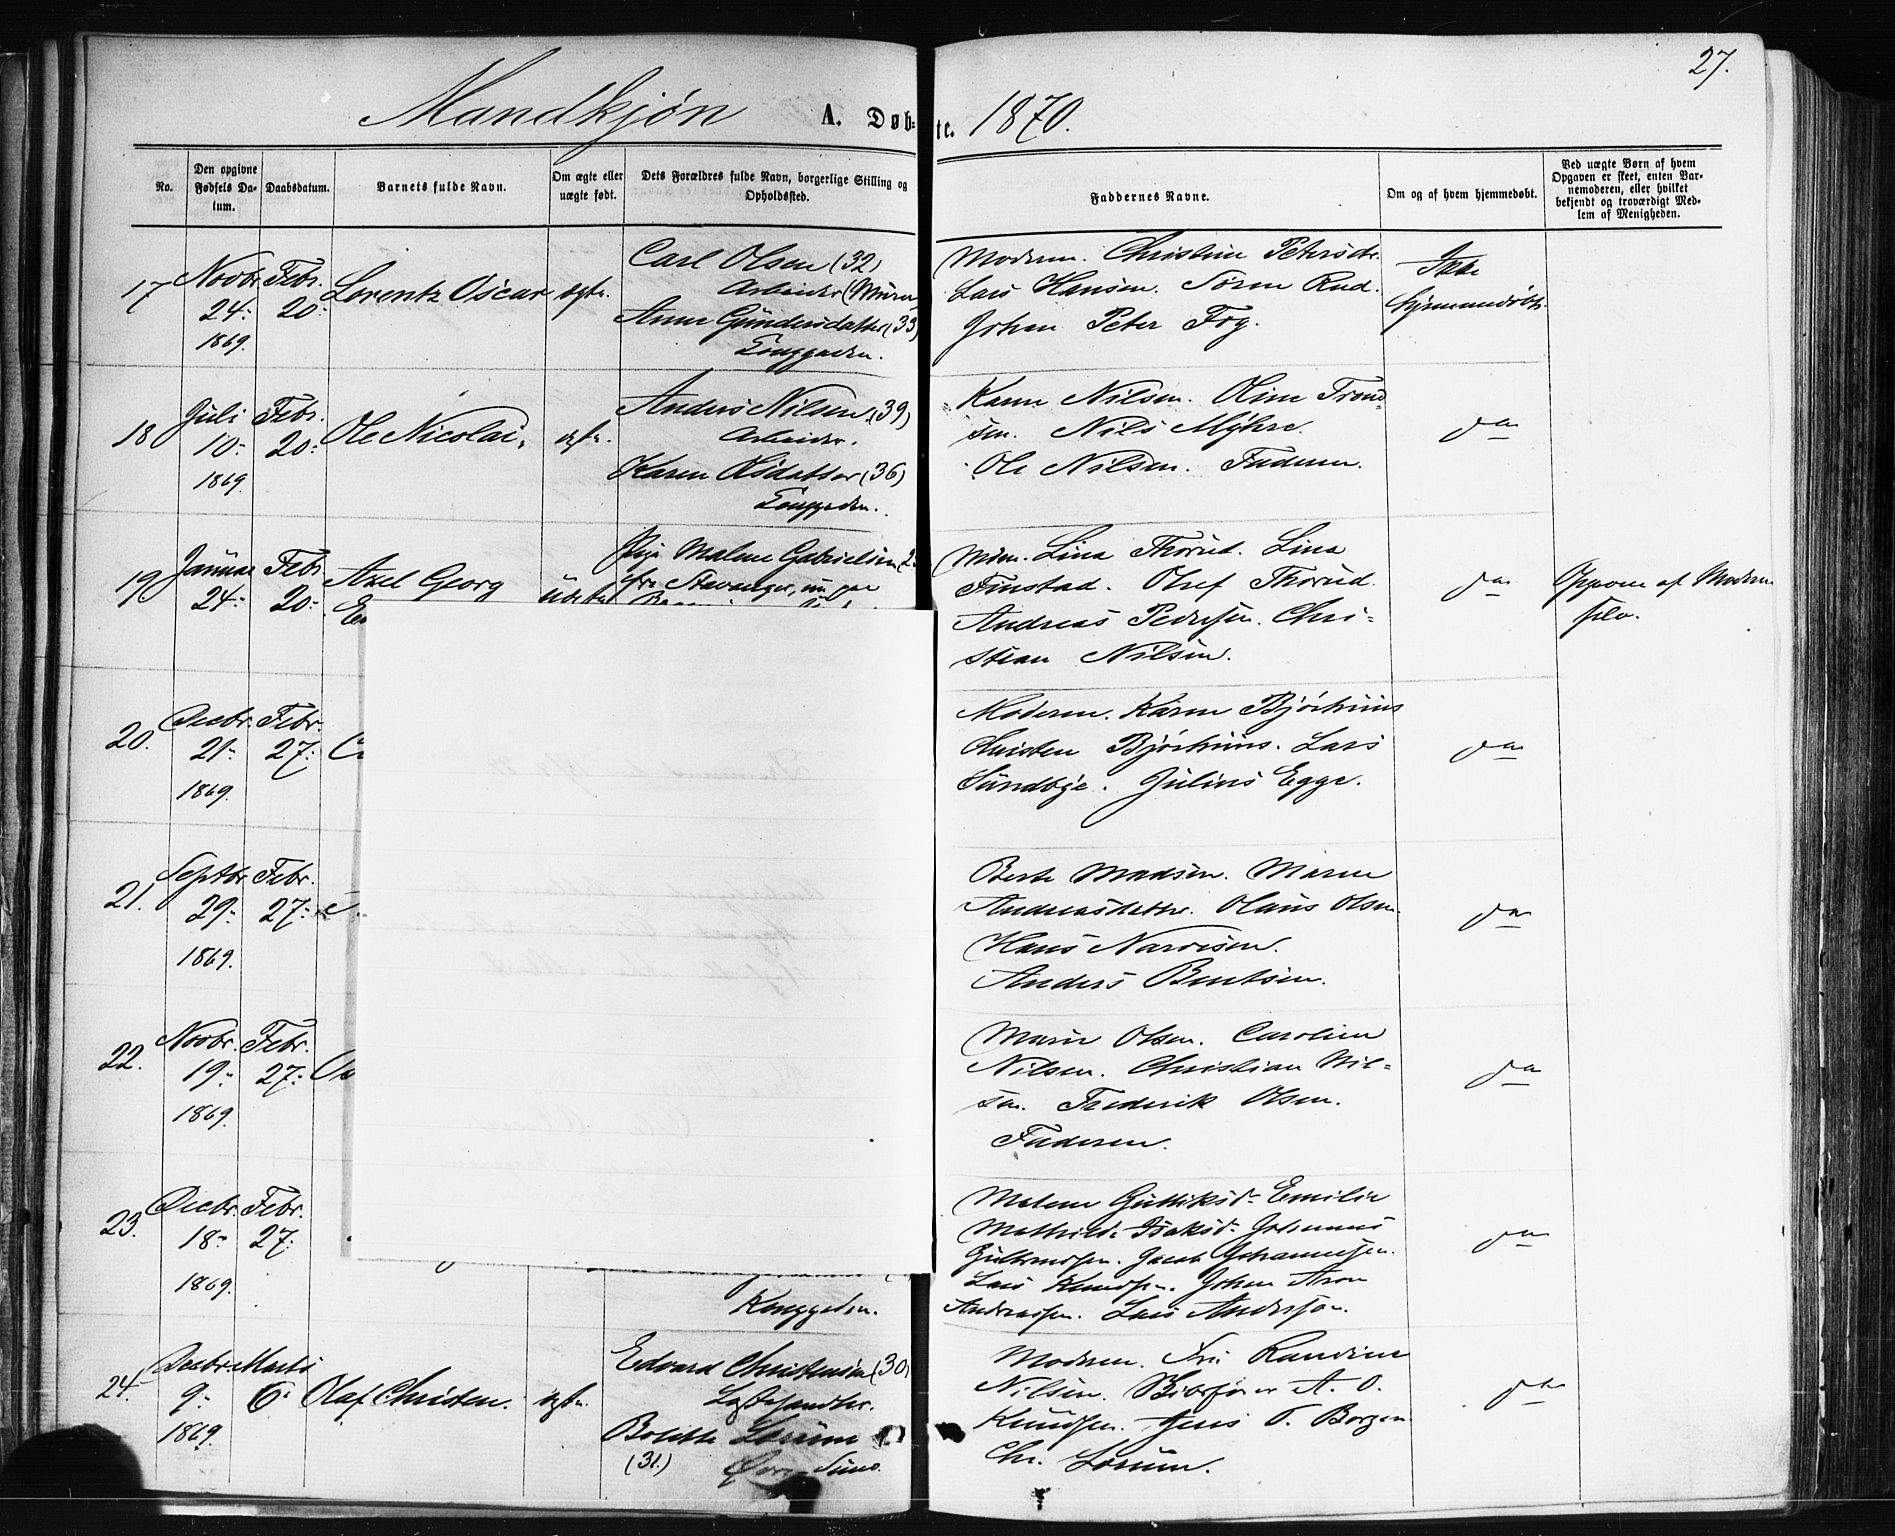 27.
Mandkjøn A. Døb-te. 1870.
No.
Den opgivne Fødsels Da-tum.
Daabsdatum.
Barnets fulde Navn.
Om ægte eller uægte født.
Dets Forældres fulde Navn, borgerlige Stilling og Opholdssted.
Faddernes Navne.
Om og af hvem hjemmedøbt.
Ved uægte Børn af hvem Opgaven er skeet, enten Bar-nemoderen, eller hvilket bekjendt og troværdigt Med-lem af Menigheden.
17 Novbr. 24- 1869. Febr. 20- Lorentz Oscar ægte.
Carl Olsen (32)
Arbeider (Murer
Anne Gündersdatter (33)
Longgaden.
Moderen. Christine Petersdr.
Lars Hansen. Sören Rud.
Johan Peter Fog.
Ikke
hjemmedøbt.
18 Juli 10- 1869. Febr. 20- Ole Nicolai, ægte.
Anders Nilsen (39)
Arbeider.
Karen Olsdatter (36)
Longgaden.
Karen Nilsen. Oline Trond=
sen. Nils Myhre.
Ole Nilsen. Faderen.
19 Januar 24- Febr. 20- Axel Georg
Pige Malene Gabrielsen (2
fra Stavanger, nu paa
Lina Thorud. Lina
Finstad. Olof Thorud.
Andreas Pedersen. Chri=
stian Nilsen.
Opgave af Moderen
selv.
20. Decbr. 21- 1869. Febr. 27-
Moderen. Karen Bjørhuus
Christen Bjørhuus. Lars
Sundbye. Julius Egge.
21. Septbr. 29- 1869. Febr. 27-
Berte Madsen. Maren
Andreasdatter. Olaus Olsen.
Hans Narvesen.
Anders Bentsen.
22. Novbr. 19- 1869. Febr. 27-
Marie Olsen. Caroline
Nilsen. Christian Nil=
sen. Frederik Olsen.
Faderen.
23. Decbr. 18- 1869. Febr. 27-
Malene Gulliksd- Emilie
Mathilde Isaksd- Johannes
Gulbrandsen. Jacob Johannesen.
Lars Knudsen. Johan Aron
Andreassen. Lars Anderson.
Konggaden.
24. Decbr. 9- 1869. Marts 6- Olaf Christen. ægte.
Edvard Christensen (30)
Bolette Lorum
(31.)
Moderen. Frü Randine
Nilsen. A. O.
Knudsen. Jens O. Borgen
Chr. Lorum.